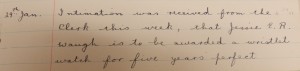 29th Jan. Intimation was received from the
Clerk this week, that Jessie E. R.
Waugh is to be awarded a wristlet
watch for five years perfect